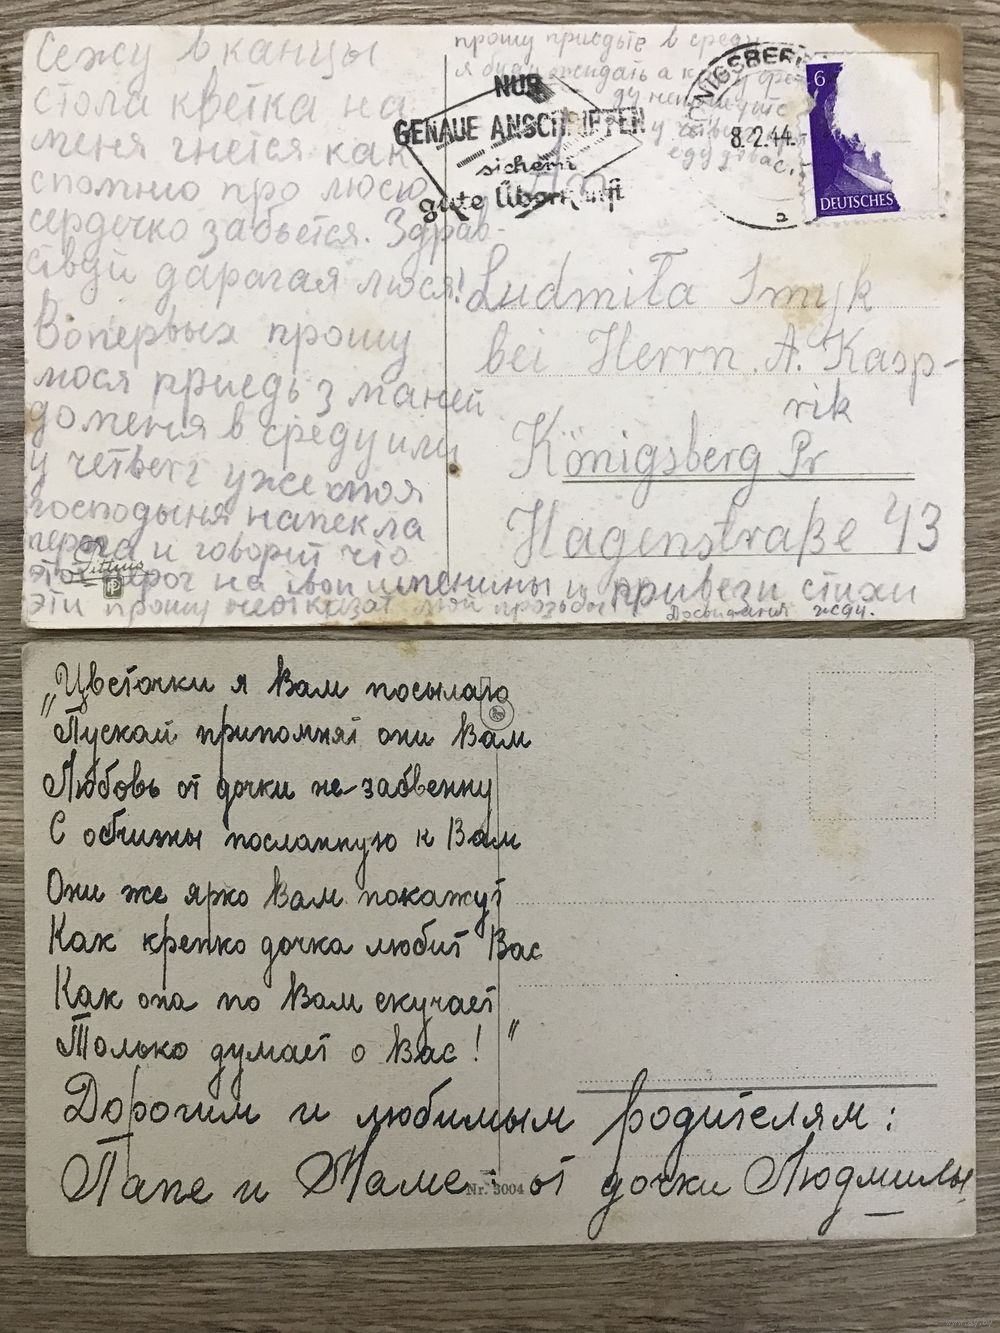 Сежу в канцы
стола кветка на
меня гнется как
спомню про люсю
сердечко забьется. Здрав-
ствуй дарагая люся!
Вопервых прошу
люся приедь з маней
до меня в среду или
у четверг уже моя
господыня напекла
перога и говорит что
этот перог на твои именины и привези стихи
эти прошу неотказат мой прозьбы
Досвидания жду.
прошу приедьте в среду
я буду ожидать а када
NUR
GENAUE ANSCHRIFTEN
sichern
gute Überkunft
KÖNIGSBERG
8.2.44.
a
6
DEUTSCHES
Ludmiła Smyk
bei Herrn. A. Kasp-
rik
Königsberg Pr
Hagenstraße 43
„Цветочки я Вам посылаю
Пускай припомнят они Вам
Любовь от дочки не-забвенну
С обчизны посланную к Вам
Они же ярко Вам покажут
Как крепко дочка любит Вас
Как она по Вам скучает
Только думает о Вас! "
Дорогим и любимым родителям:
Папе и Маме: от дочки Людмилы
Nr. 3004